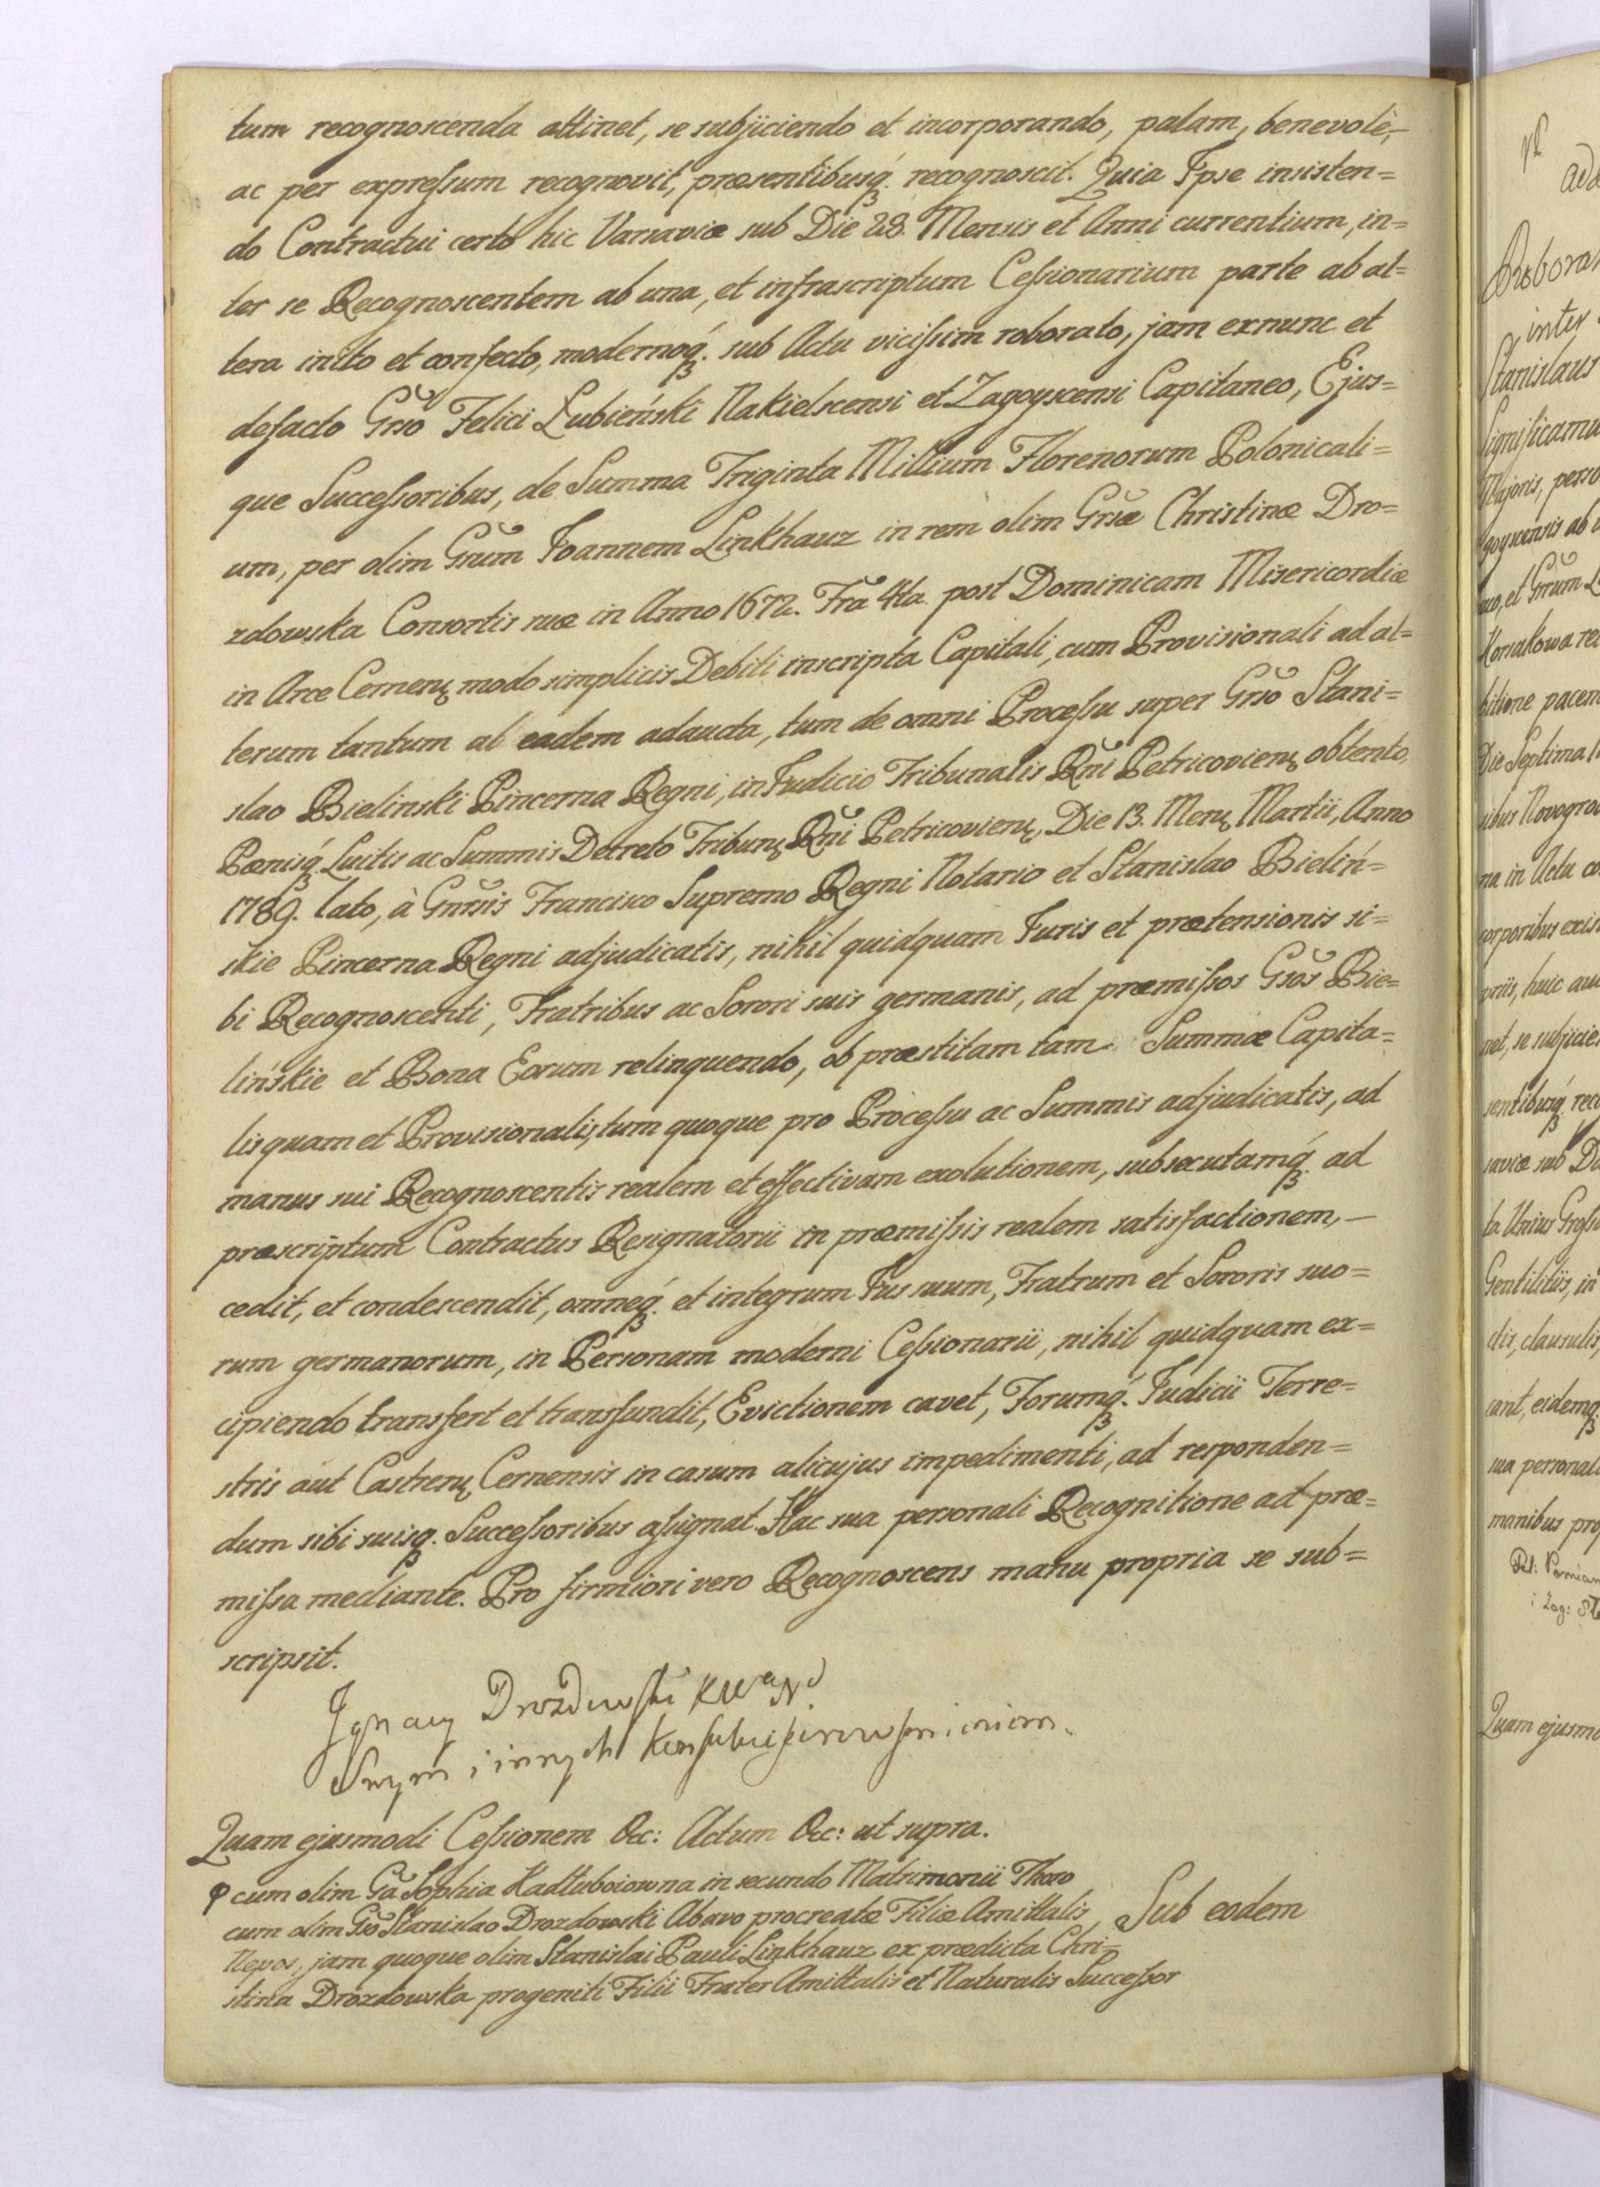 tum recognoscenda attinet, se subjiciendo et incorporando, palam, benevolè,
ac per expreſsum recognovit, præsentibusq́. recognoscit. Quia Ipse insisten=
do Contractui certo hic Varsaviæ sub Die 28. Mensis et Anni currentium, in=
ter se Recognoscentem ab una, et infrascriptum Ceſsionarium parte ab al=
tera inito et confecto, modernoq́. sub Actu viciſsim roborato, jam exnunc et
defacto Grso Felici Łubieński Nakielscensi et Zagoyscensi Capitaneo, Ejus=
que Succeſsoribus, de Summa Triginta Millium Florenorum Polonicali=
um, per olim Grum Joannem Linkhauz in rem olim Grsæ Christinæ Dro=
zdowska Consortis suæ in Anno 1672. Fra 4ta post Dominicam Misericordiæ
in Arce Cernen: modo simplicis Debiti inscripta Capitali, cum Provisionali ad al=
terum tantum ab eadem adaucta, tum de omni Proceſsu super Grso Stani=
slao Bielinski Pincerna Regni, in Judicio Tribunalis Rni Petricovien: obtento,
Pœnisq́. Luitis ac Summis Decreto Tribun: Rni Petricovien: Die 13. Men: Martii, Anno
1789. lato, à Gnrsis Francisco Supremo Regni Notario et Stanislao Bieliń=
skie Pincerna Regni adjudicatis, nihil quidquam Juris et prætensionis si=
bi Recognoscenti, Fratribus ac Sorori suis germanis, ad præmiſsos Gsos Bie=
lińskie et Bona Eorum relinquendo, ob præstitam tam Summæ Capita=
lis quam et Provisionalis, tum quoque pro Proceſsu ac Summis adjudicatis, ad
manus sui Recognoscentis realem et effectivam exolutionem, subsecutamq́. ad
præscriptum Contractus Resignatorii in præmiſsis realem satisfactionem,
cedit, et condescendit, omneq́. et integrum Jus suum, Fratrum et Sororis suo=
rum germanorum, in Personam moderni Ceſsionarii, nihil quidquam ex=
cipiendo transfert et transfundit, Evictionem cavet, Forumq́. Judicii Terre=
stris aut Castren: Cernensis in casum alicujus impedimenti, ad responden=
dum sibi suisq. Succeſsoribus aſsignat. Hac sua personali Recognitione ad præ=
miſsa mediante. Pro firmiori vero Recognoscens manu propria se sub=
scripsit.
Ignacy Drozdowski
Swym i innych
Quam ejusmodi Ceſsionem &c: Actum &c: ut supra.
φ cum olim Ga Sophia Kadłuboiowna in secundo Matrimonii Thoro
cum olim Gso Stanislao Drozdowski Abavo procreatæ Filiæ Amittalis
Nepos, jam quoque olim Stanislai Pauli Linkhauz ex prædicta Chri=
stina Drozdowska progeniti Filii Frater Amittalis et Naturalis Succeſsor
Sub eodem